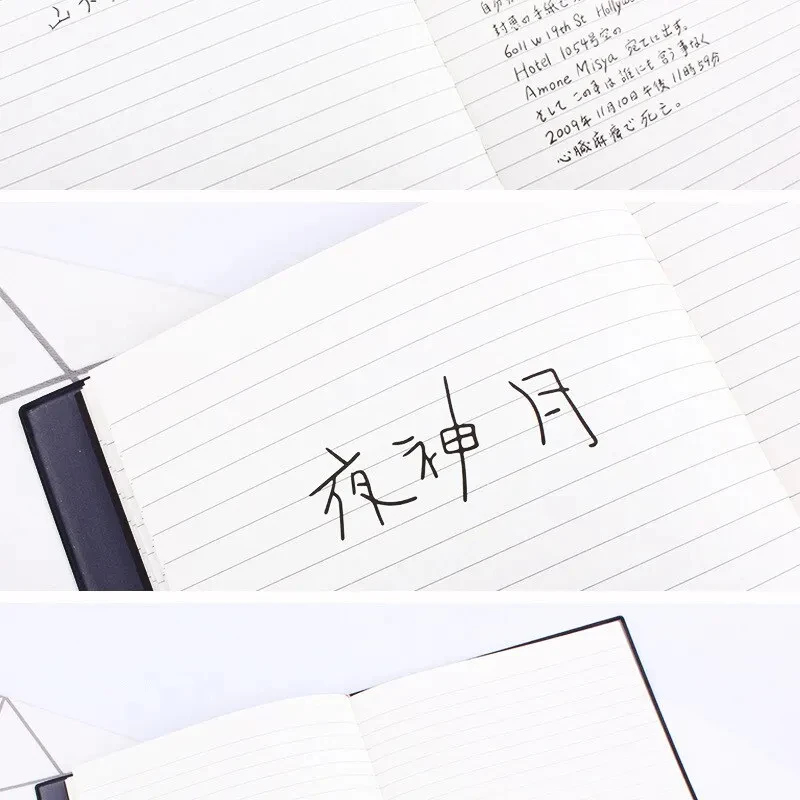 封悪の手紙で
6011 w 19th St Hollyw
Hotel 1054号室の
Amone Misya 宛てに出す。
そして この事は 誰にも 言う事なく
2009年 11月10日 午後 11時59分
心臓麻痺で 死亡。
夜神 月